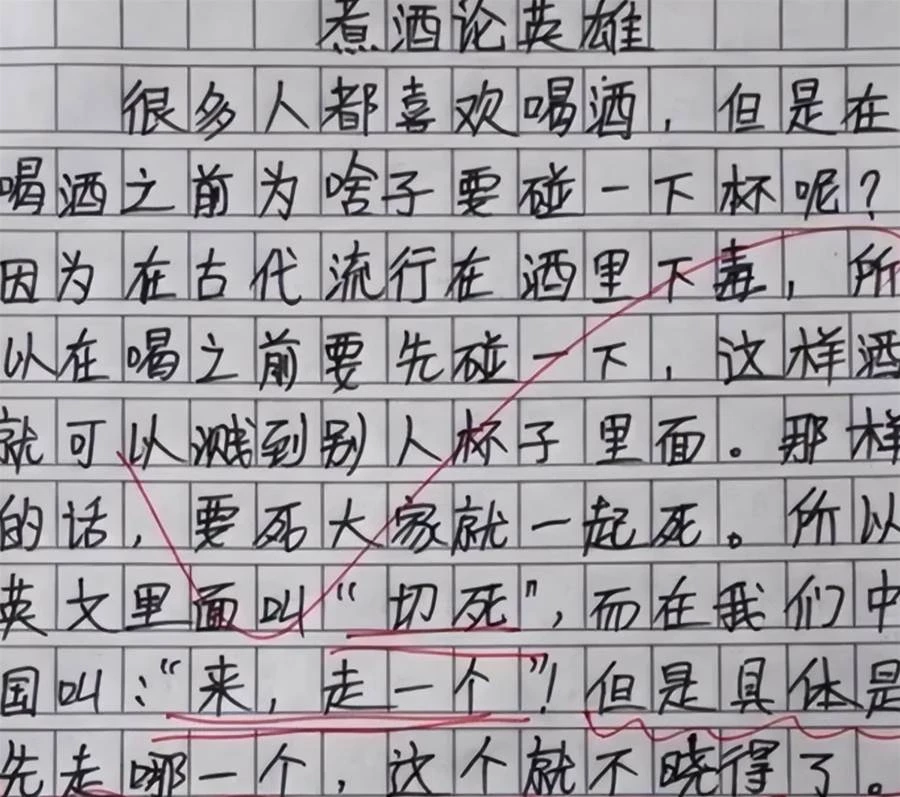 煮酒论英雄
很多人都喜欢喝酒，但是在
喝酒之前为啥子要碰一下杯呢？
因为在古代流行在酒里下毒，所
以在喝之前要先碰一下，这样酒
就可以溅到别人杯子里面。那样
的话，要死大家就一起死。所以
英文里面叫“切死”，而在我们中
国叫：“来，走一个”！但是具体是
先走哪一个，这个就不晓得了。